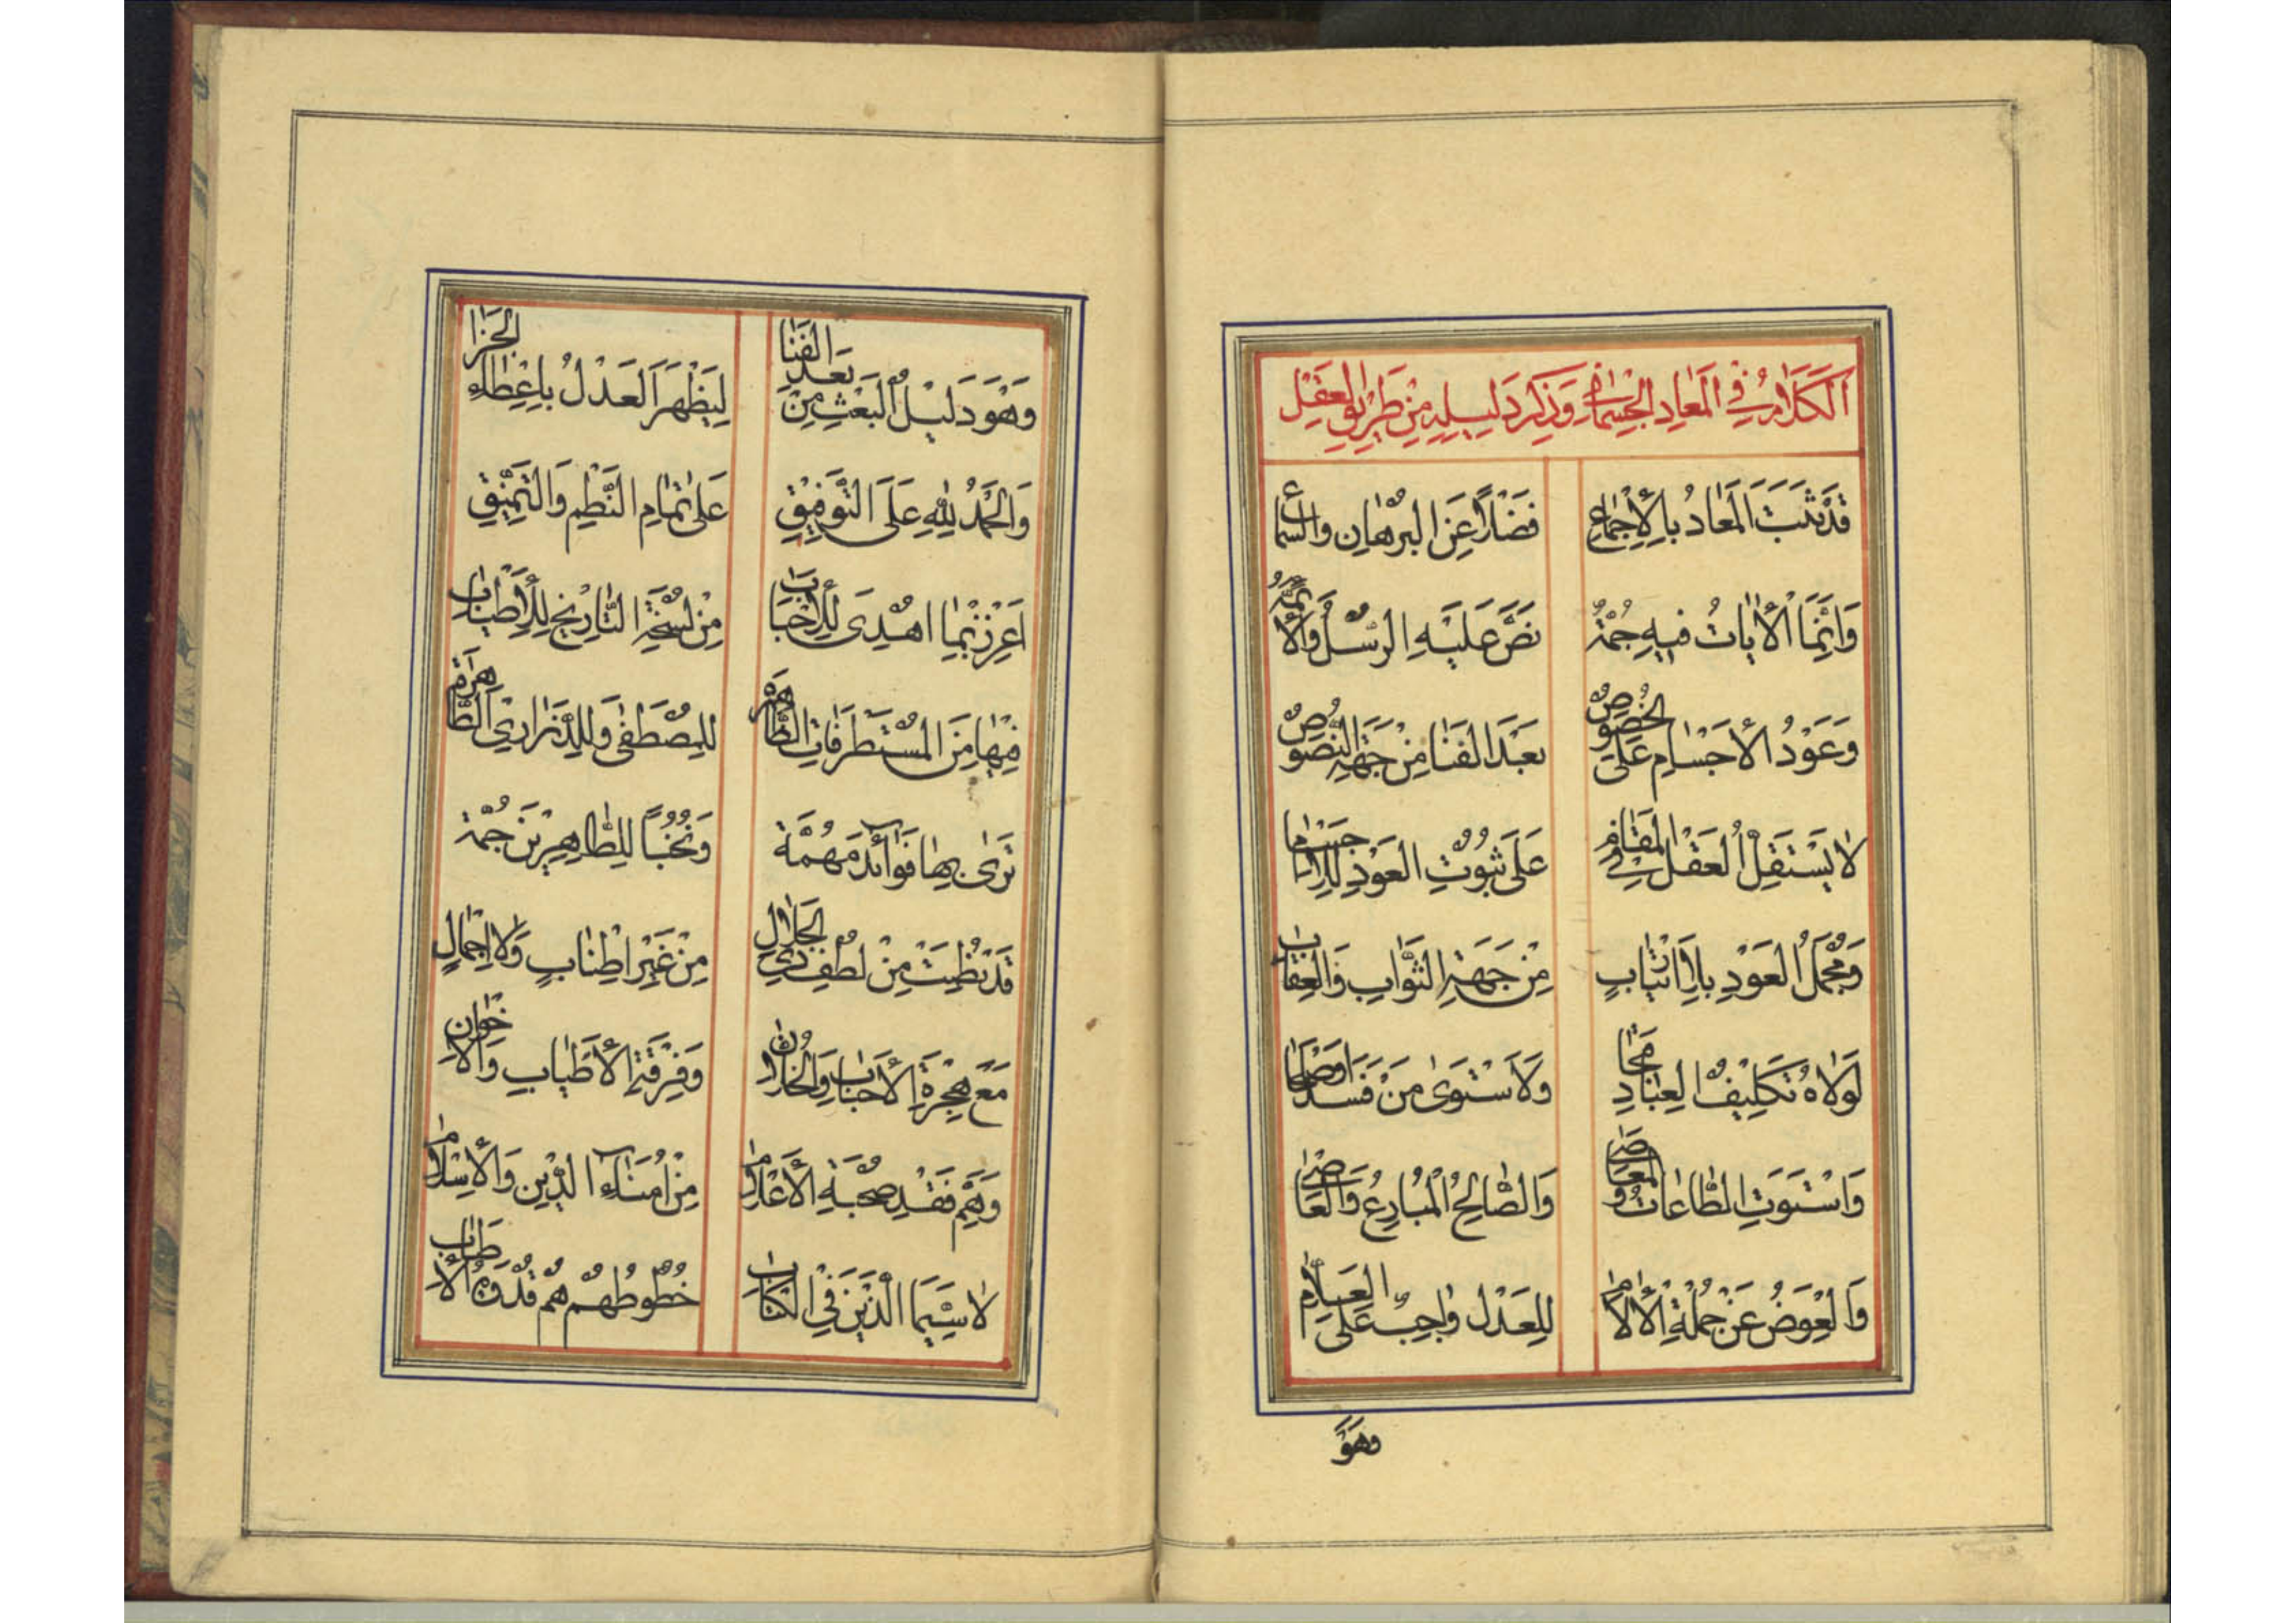 اَلْكَلامُ فِي الْمَعادِ الْجِسْمانِي وَذِكْرِ دَلِيلِهِ مِنْ طَرِيقِ الْعَقْلِ
قَدْ ثَبَتَ الْمَعادُ بِالْإِجْماعِ فَضْلاً عَنِ الْبُرْهانِ وَالسَّماعِ
وَإِنَّمَا الْأٰياتُ فِيهِ جُمَّةٌ نَصَّ عَلَيْهِ الرُّسُلُ وَالْأَئِمَّةُ
وَعَوْدُ الْأَجْسامِ عَلَى الْخُصُوصِ بَعْدَ الْفَنا مِنْ جَهَةِ النُّصُوصِ
لا يَسْتَقِلُّ الْعَقْلُ فِي الْمَقامِ عَلَى ثُبُوتِ الْعَوْدِ لِلْأَجْسامِ
وَمُجْمَلُ الْعَوْدِ بِلَا ارْتِيابٍ مِنْ جَهَةِ الثَّوابِ وَالْعِقابِ
لَوْلاهُ تَكْلِيفُ الْعِبادِ قَبُحا وَلَاسْتَوىٰ مَنْ فَسَدَ أَوْ صَلَحا
وَاسْتَوَتِ الطَّاعاتُ وَالْمَعاصِي وَالصَّالِحُ الْمُبارِعُ وَالْعاصِي
وَالْعِوَضُ عَنْ جُمْلَةِ الْأٰلامِ لِلْعَدْلِ واجِبٌ عَلَى الْعَلّامِ
وَهْوَ
وَهْوَ دَلِيلُ الْبَعْثِ مِنْ بَعْدِ الْفَنا لِيَظْهَرَ الْعَدْلُ بِإِعْطاءِ الْجَزا
وَالْحَمْدُ لِلّٰهِ عَلَى التَّوْفِيقِ عَلىٰ تَمامِ النَّظْمِ وَالتَّنْمِيقِ
اَعْزِزْ بِما اُهْدِىَ لِلْأَحْبابِ مِنْ نُسْخَةِ التَّارِيخِ لِلْأَطْيابِ
فِيها مِنَ الْمُسْتَطْرَفاتِ الظَّاهِرَة لِلْمُصْطَفىٰ وَلِلذَّرارِي الطَّاهِرَة
تَرىٰ بِها فَوآئِدَ مُهِمَّة وَنُخُباً لِلطَّاهِرِينَ جُمَّة
قَدْ نُظِمَتْ مِنْ لُطْفِ ذِي الْجَلالِ مِنْ غَيْرِ إِطْنابٍ وَلا إِجْمالٍ
مَعَ هِجْرَةِ الْأَحْبابِ وَالْخُلّانِ وَفِرْقَةِ الْأَطْيابِ وَالْإِخْوانِ
وَهَمِّ فَقْدِ صُحْبَةِ الْأَعْلامِ مِنْ اُمَنآءِ الدِّينِ وَالْإِسْلامِ
لا سِيَّما الَّذِينَ فِي الْكِتابِ خُطُوطُهُمْ هُمْ قُدْوَةُ الْأَطْيابِ